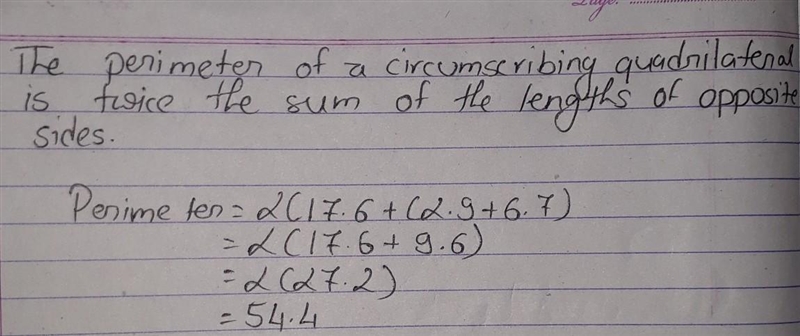 The perimeter of a circumscribing quadrilateral
is twice the sum of the lengths of opposite
sides.
Perimeter = 2(17.6 + (2.9 + 6.7)
= 2(17.6 + 9.6)
= 2(27.2)
= 54.4